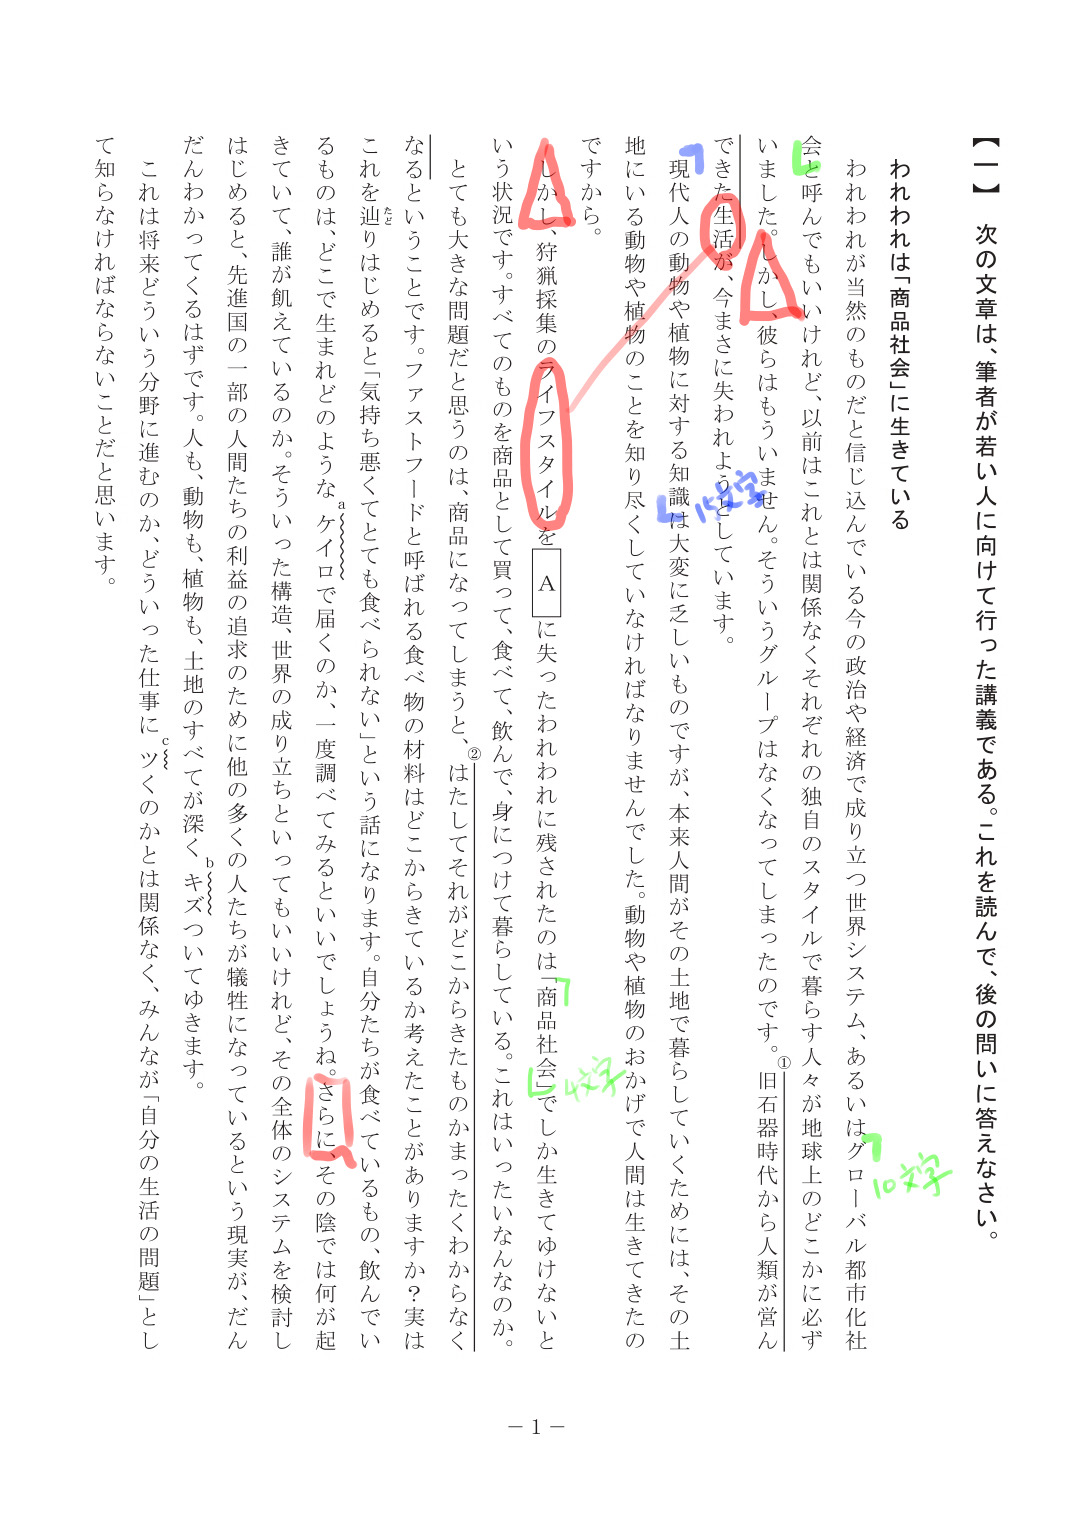 【一】 次の文章は、筆者が若い人に向けて行った講義である。これを読んで、後の問いに答えなさい。
われわれは「商品社会」に生きている
われわれが当然のものだと信じ込んでいる今の政治や経済で成り立つ世界システム、あるいはグローバル都市化社
10文字
会と呼んでもいいけれど、以前はこれとは関係なくそれぞれの独自のスタイルで暮らす人々が地球上のどこかに必ず
いました。しかし、彼らはもういません。そういうグループはなくなってしまったのです。①旧石器時代から人類が営ん
できた生活が、今まさに失われようとしています。
15文字
現代人の動物や植物に対する知識は大変に乏しいものですが、本来人間がその土地で暮らしていくためには、その土
地にいる動物や植物のことを知り尽くしていなければなりませんでした。動物や植物のおかげで人間は生きてきたの
ですから。
しかし、狩猟採集のライフスタイルを A に失ったわれわれに残されたのは「商品社会」でしか生きてゆけないと
4文字
いう状況です。すべてのものを商品として買って、食べて、飲んで、身につけて暮らしている。これはいったいなんなのか。
とても大きな問題だと思うのは、商品になってしまうと、②はたしてそれがどこからきたものかまったくわからなく
なるということです。ファストフードと呼ばれる食べ物の材料はどこからきているか考えたことがありますか？実は
これを辿りはじめると「気持ち悪くてとても食べられない」という話になります。自分たちが食べているもの、飲んでい
たど
るものは、どこで生まれどのような aケイロで届くのか、一度調べてみるといいでしょうね。さらに、その陰では何が起
きていて、誰が飢えているのか。そういった構造、世界の成り立ちといってもいいけれど、その全体のシステムを検討し
はじめると、先進国の一部の人間たちの利益の追求のために他の多くの人たちが犠牲になっているという現実が、だん
だんわかってくるはずです。人も、動物も、植物も、土地のすべてが深く bキズついてゆきます。
これは将来どういう分野に進むのか、どういった仕事に cツくのかとは関係なく、みんなが「自分の生活の問題」とし
て知らなければならないことだと思います。
－ 1 －